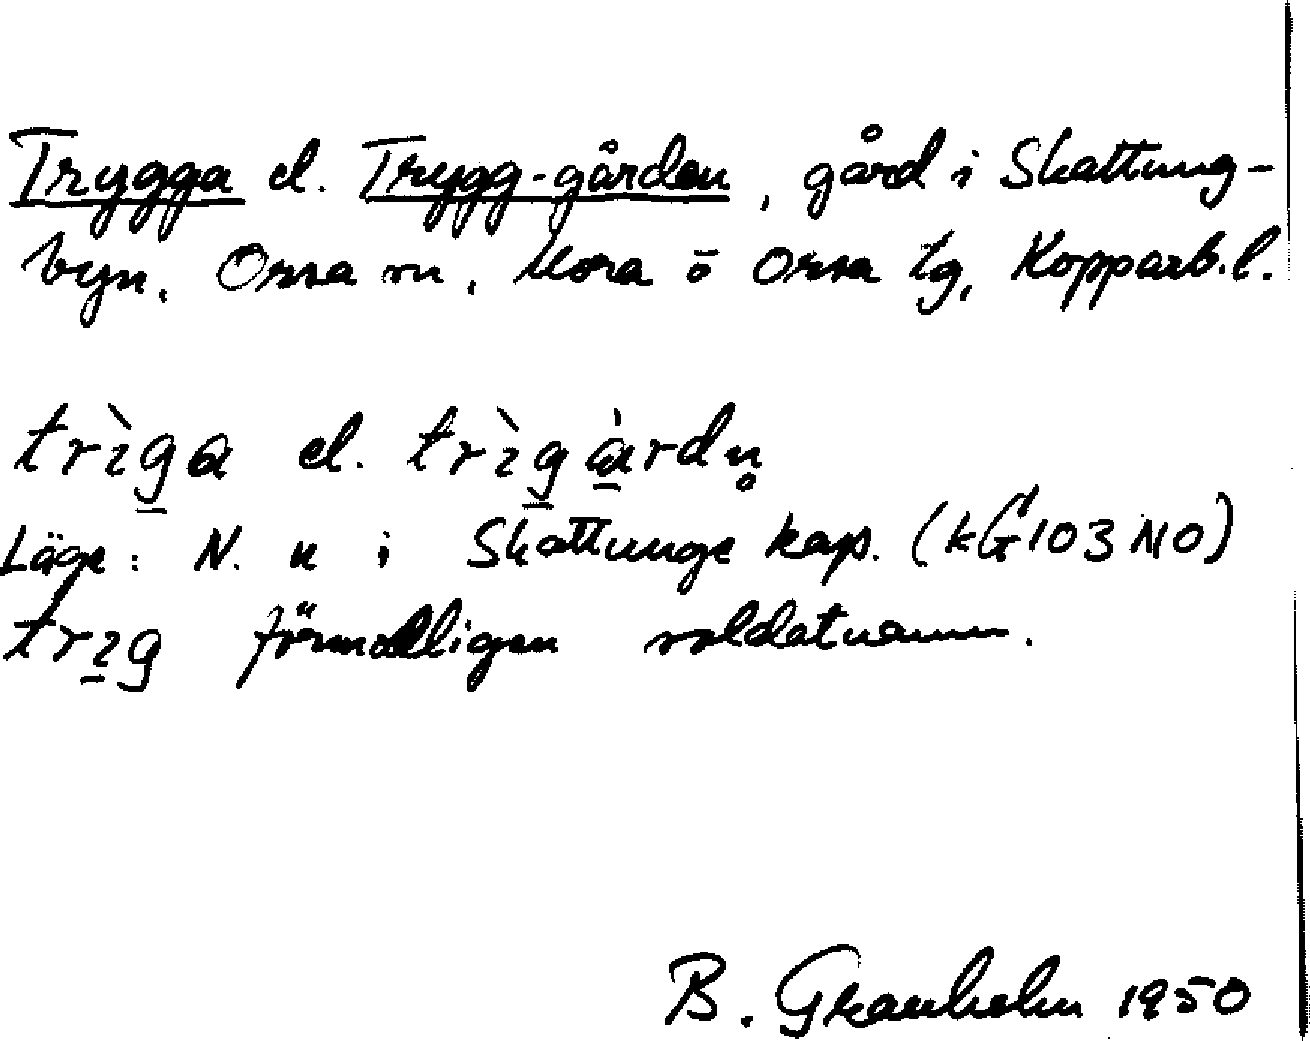 Trygga el. Trygg-gården, gård i Skattung-
byn, Orsa sn, Mora o Orsa tg, Kopparb.l.
trìga el. trìgàrdn̥
Läge: N. u i Skattunge kap. (kG103 NO)
trig förmodligen soldatnamn.
B. Granholm 1950